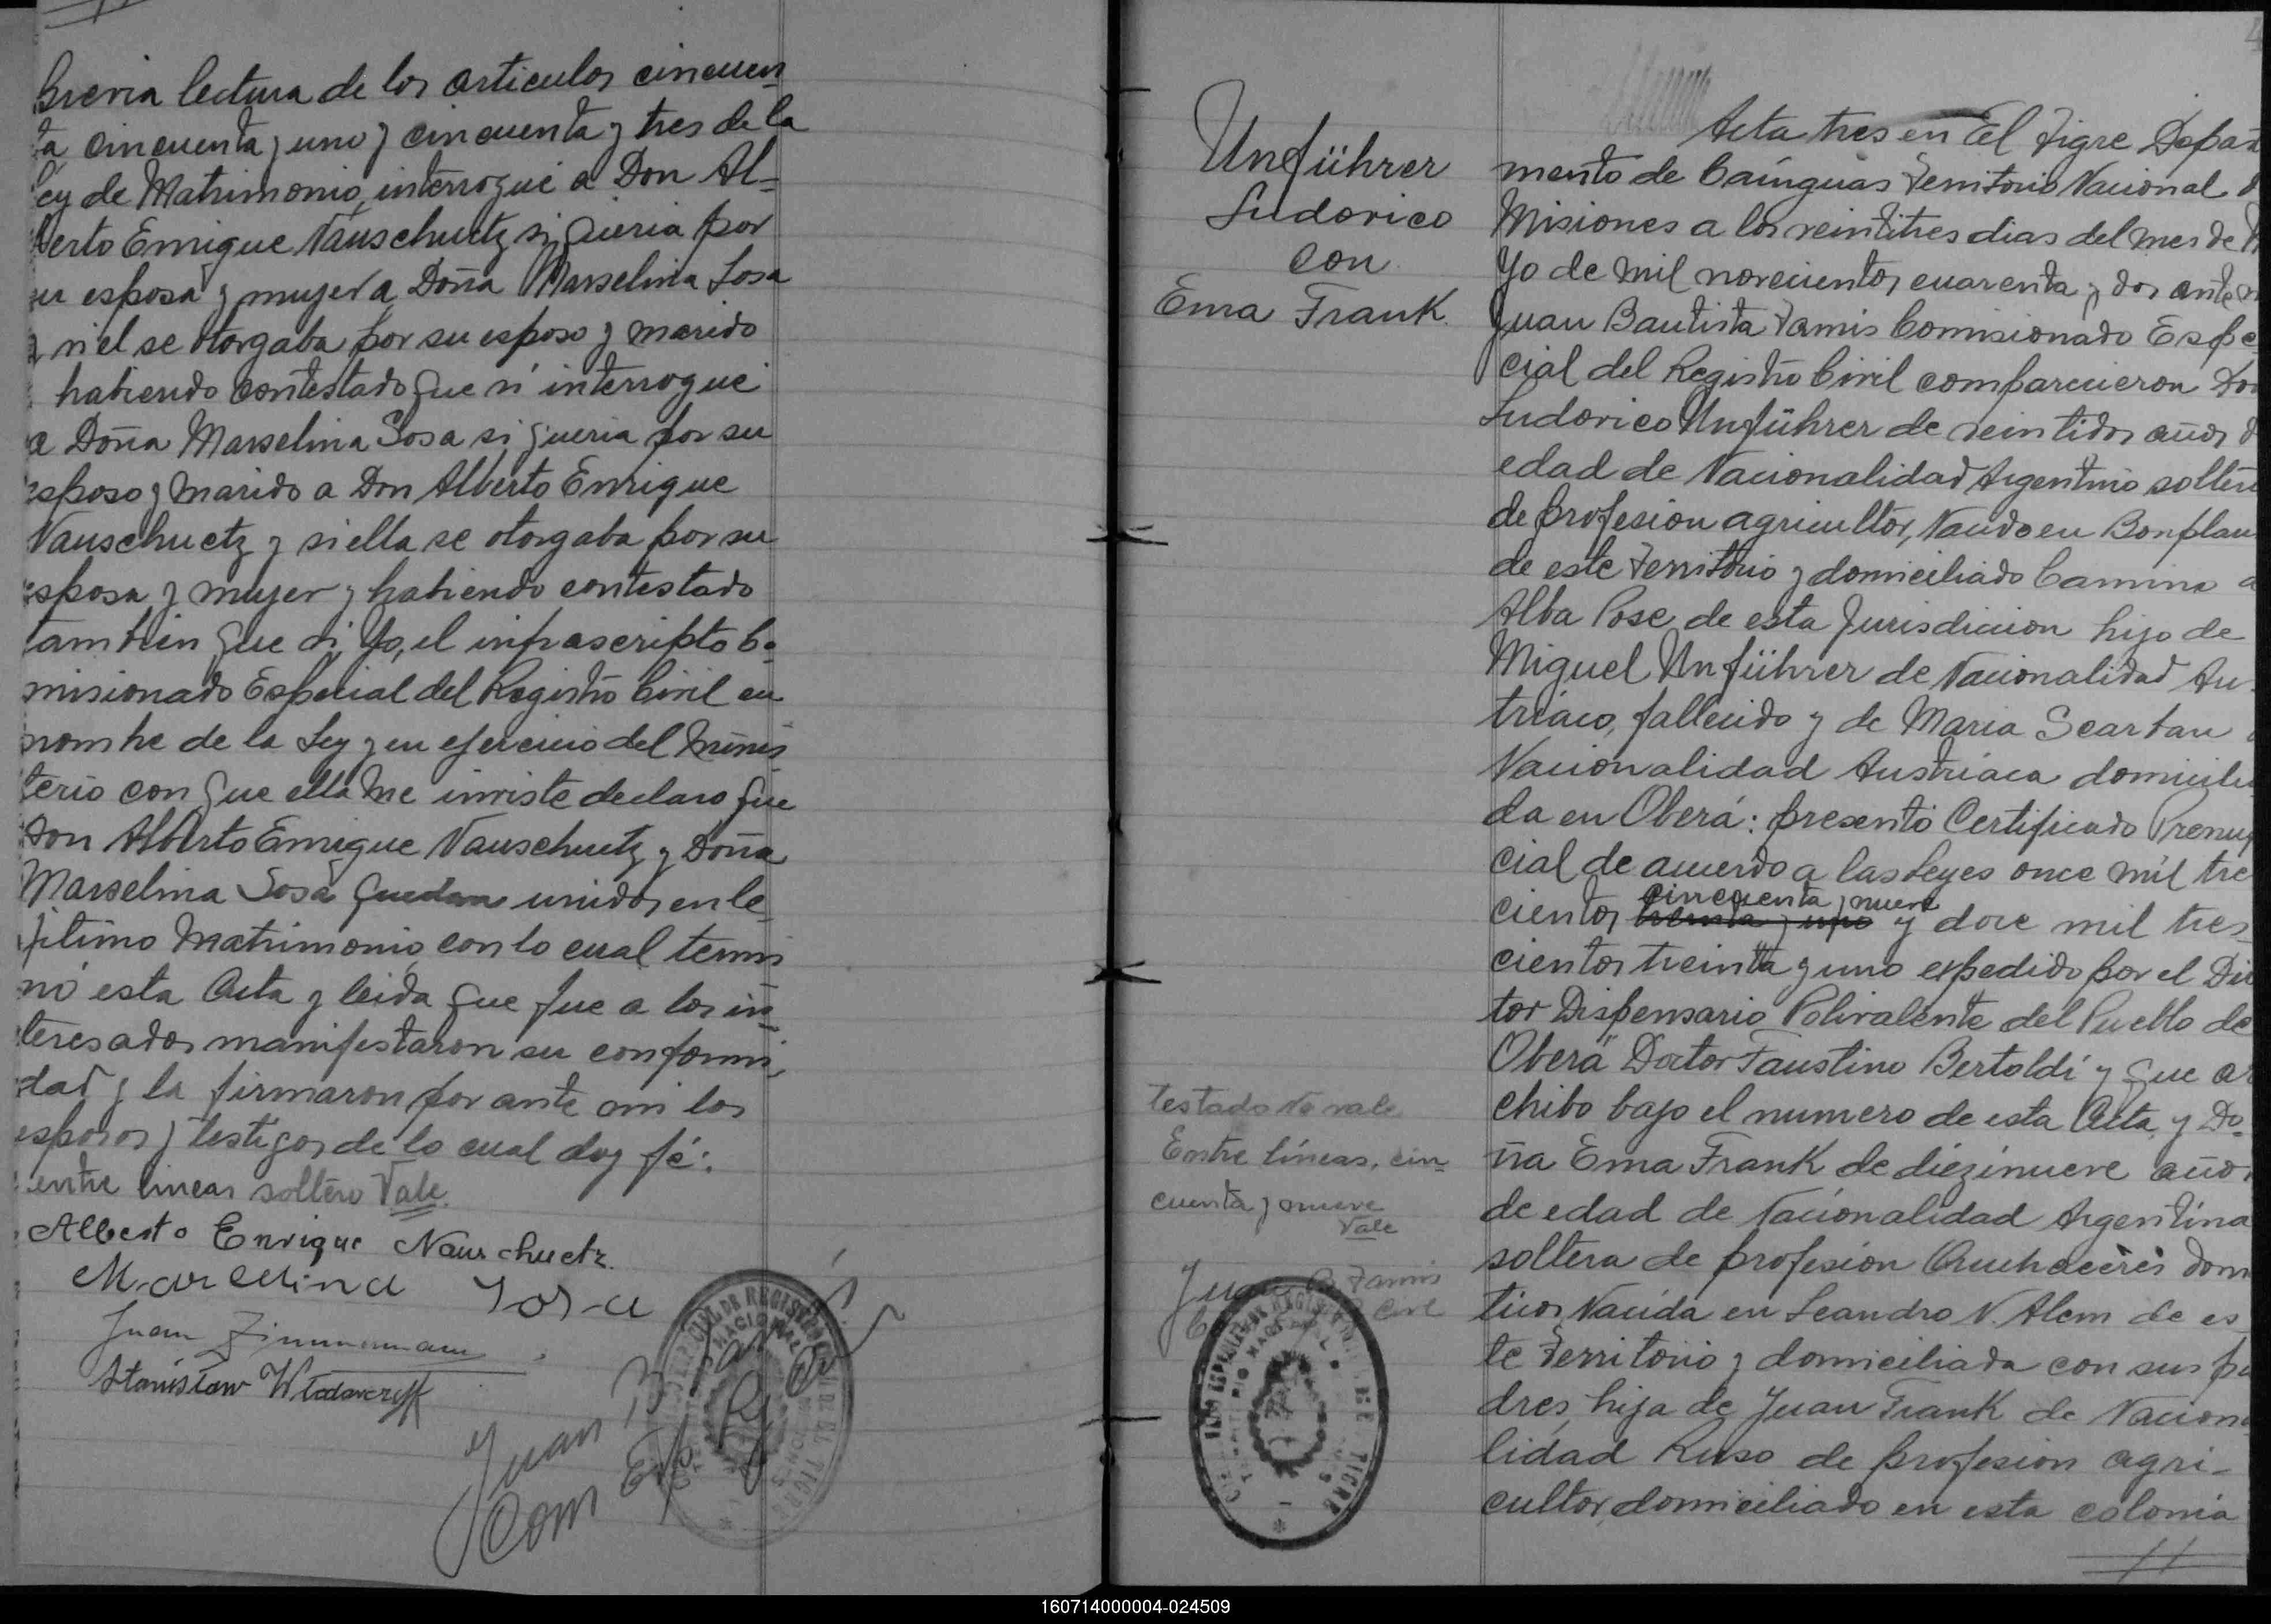 previa lectura de los articulos cincuen
ta cincuenta y uno y cincuenta y tres de la
ley de Matrimonio, interrogué a Don Al=
berto Enrique Nauschuetz si queria por
su esposa y mujer a Doña Marselina Sosa
y si el se otorgaba por su esposo y marido
habiendo contestado que si interrogué
a Doña Marselina Sosa si queria por su
esposo y marido a Don Alberto Enrique
Nauschuetz y si ella se otorgaba por su
esposa y mujer y habiendo contestado
tambien que si, Yo, el infrascripto Co-
misionado Especial del Registro Civil en
nombre de la Ley y en ejercicio del Minis
terio con que ella me inviste declaro que
Don Alberto Enrique Nauschuetz y Doña
Marselina Sosa quedan unidos en le
jitimo Matrimonio con lo cual termi
nó esta Acta y leida que fue a los in
teresados manifestaron su conformi,
dad y la firmaron por ante mi los
esposos y testigos de lo cual doy fé:.
entre lineas soltero Vale.
Alberto Enrique Nauschuetz.
Marcelina Sosa
Juan Zimmermann
Stanisław Włodarczyk
Juan B
Com Esp
Unführer
Ludovico
con
Ema Frank.
testado No vale
Entre líneas, cin=
cuenta y nueve
Vale
Juan B Tamis
Civil
Acta tres en El Tigre Depart
mento de Cainguas Territorio Nacional d
Misiones a los veintitres dias del mes de M
yo de mil novecientos cuarenta y dos ante m
Juan Bautista Tamis Comisionado Espe
cial del Registro Civil comparecieron Don
Ludovico Unführer de veintidos años d
edad de Nacionalidad Argentino soltero
de profesion agricultor, Nacido en Bonplan
de este Territorio y domiciliado Camino a
Alba Pose de esta Jurisdicion hijo de
Miguel Unführer de Nacionalidad Au
triaco, fallecido y de Maria Scartan
Nacionalidad Austriaca domicilia
da en Oberá: presentó Certificado Prenup
cial de acuerdo a las Leyes once mil tre
cincuenta y nueve
cientos treinta y uno y doce mil tres
cientos treinta y uno expedido por el Dir
tor Dispensario Polivalente del Pueblo de
Oberá Doctor Faustino Bertoldi y que ar
chibo bajo el numero de esta Acta y Do
ña Ema Frank de diezinueve años
de edad de Nacionalidad Argentina
soltera de profesion Quehaceres dom
ticos, Nacida en Leandro N. Alem de es
te Territorio y domiciliada con sus pa
dres, hija de Juan Frank de Naciona
lidad Ruso de profesion agri-
cultor, domiciliado en esta colonia
160714000004-024509